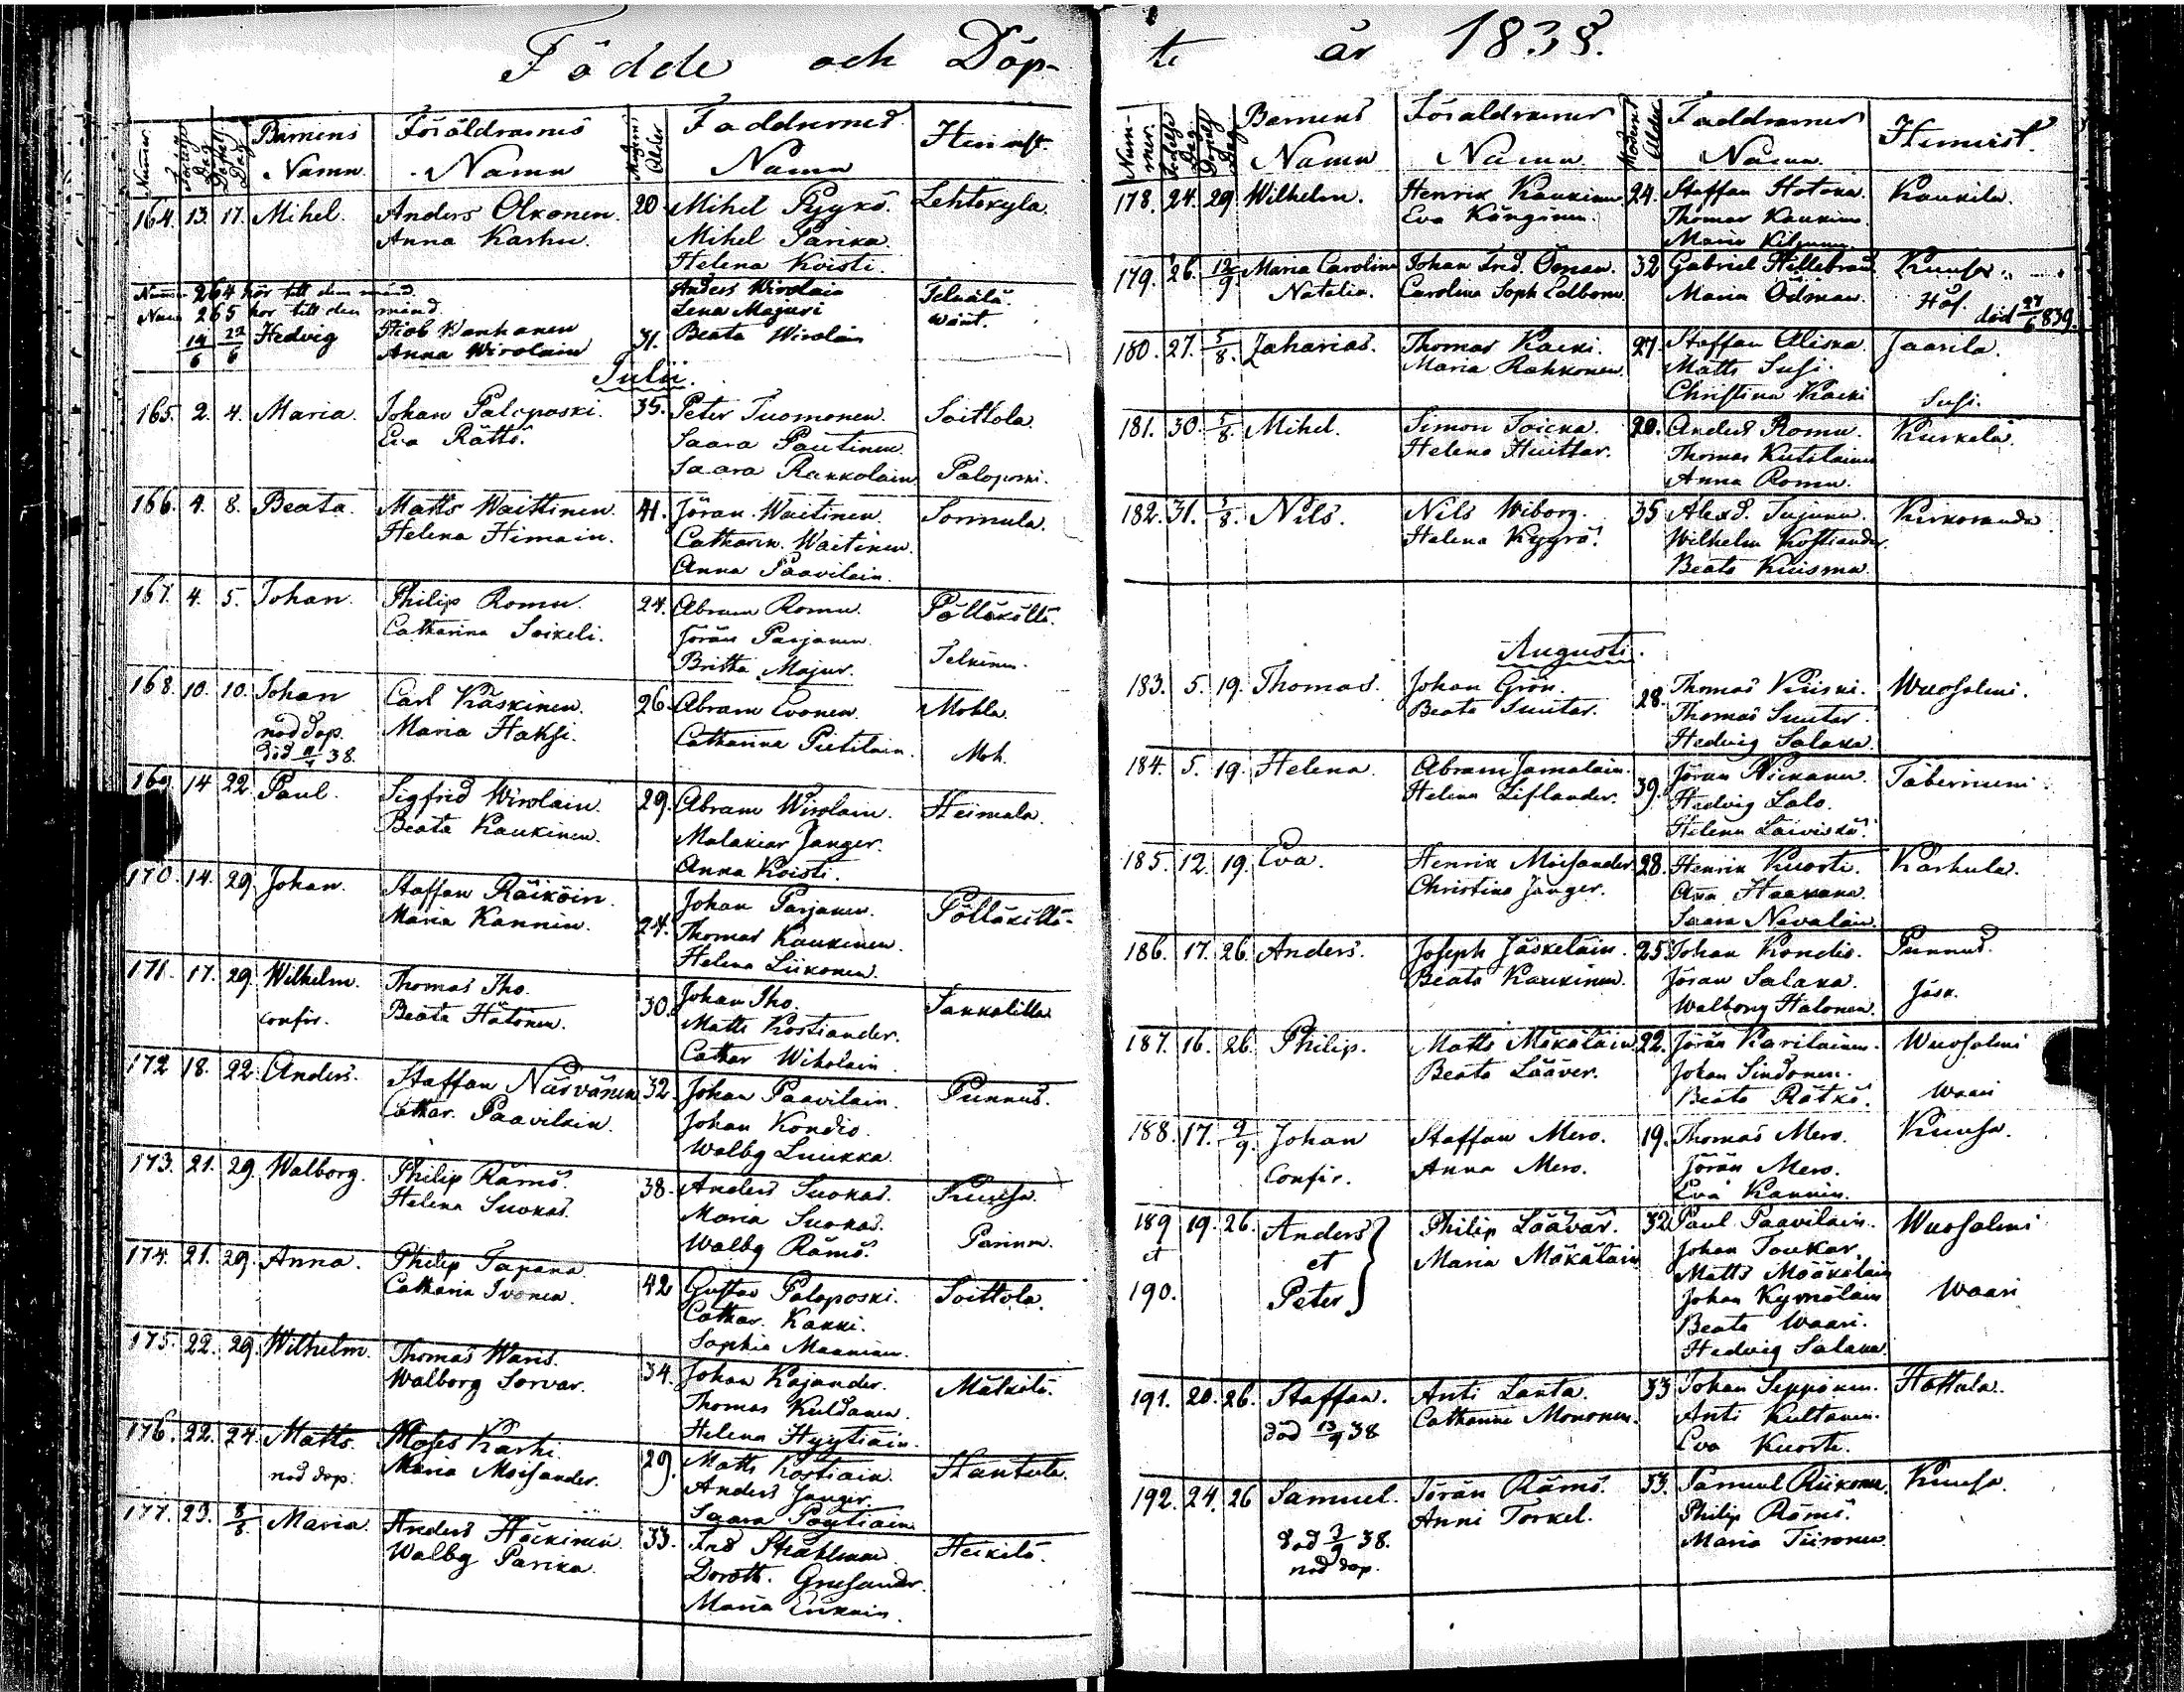 Födde och Döp-
Numer
Födelse Dag
Dopets Dag
Barnens Namn.
Föräldrarnes Namn
Modrens Ålder
Faddrarnes Namn
Hemvist.
164. 13. 17. Mihel. Anders Olkonen. 20 Mihel Pyykö. Lehtokylä.
Anna Karhu. Mihel Parika.
Helena Koisti.
Numer 264 hör till den månd. Anders Wirolain
Num 265 hör till den månd. Lena Majuri
14/6 22/6 Hedvig Jacob Wanhanen 31. Beata Wirolain
Anna Wirolain
Julii.
165. 2. 4. Maria. Johan Paloposki. 35. Peter Tuomonen. Soittola.
Eva Rättö. Saara Pautinen.
Saara Raukkolain Paloposki.
166. 4. 8. Beata. Matts Waittinen. 41. Jöran Waitinen. Sormula.
Helena Himain. Catharin. Waitinen.
Anna Paavilain.
167. 4. 5. Johan. Philip Romu. 24. Abram Romu. Pölläkälä.
Catharina Soikeli. Jöran Parjanen.
Britta Majur.
168. 10. 10. Johan Carl Käskinen. 26. Abram Evonen. Mohla
nöd döp. Maria Haksi. Catharina Pietilain. Moh.
död 11/7 38.
169 14 22. Paul. Sigfrid Wirolain. 29. Abram Wirolain. Heimala.
Beata Kaukinen. Malakiar Janger.
Anna Koisti.
170. 14. 29. Johan. Staffan Räiköin. 24. Johan Parjanen. Pölläkälä.
Maria Kannin. Thomas Kaukinen.
Helena Liikonen.
171. 17. 29. Wilhelm. Thomas Iho. 30. Johan Iho.
confir. Beata Hätönen. Matts Kostiander.
Cathar Wikolain.
172 18. 22. Anders. Staffan Närvänen 32. Johan Paavilain. Punnus.
Cathar. Paavilain. Johan Kondio.
Walbg Luukka.
173. 21. 29. Walborg. Philip Rämö. 38. Anders Suokas. Kuusa.
Helena Suokas. Maria Suokas.
Walbg Rämö.
174. 21. 29. Anna. Philip Tapana. 42 Gustav Paloposki. Soittola.
Catharia Ivonen. Cathar. Kakki.
Sophia Maanian.
175. 22. 29. Wilhelm. Thomas Waris. 34. Johan Kajander. Mälkilä.
Walborg Sorvar. Thomas Kuldanen.
Helena Hyytiäin.
176. 22. 24. Matts. Moses Karhi. 29. Matts Kostiain. Hantula.
nöd döp. Maria Moisander. Anders Janger.
Saara Pöytiäin.
177. 23. 8/8. Maria. Anders Häikinen. 33. Fred Strahlman. Heikilä.
Walbg Parika. Doroth. Grefander.
Maria Enkain.
te år 1838.
Num-mer.
Födelse Dag
Dopets Dag
Barnens Namn
Föräldrarnes Namn.
Moderns Ålder
Faddrarnes Namn.
Hemvist.
178. 24. 29. Wilhelm. Henrik Kaukinen 24. Staffan Hotoka. Kaukila.
Eva Känginen. Thomas Kaukinen
Maria
179. 26. 12/9 Maria Carolina Johan Fred. Öman. 32 Gabriel Hillebrand Kuusa
Natalia. Carolina Soph Edbom. Maria Ödman. Hof.
död 27/6 839.
180. 27. 5/8. Zaharias. Thomas Kaeki. 27. Staffan Aliska. Jaarila.
Maria Rahkonen. Matts Susi.
Christina Kaeki Susi.
181. 30. 5/8. Mihel. Simon Toicka. 20. Anders Romu. Kurkela.
Helena Huittar. Thomas Kutilainen
Anna Romu.
182. 31. 5/8. Nils. Nils Wiborg. 35 Alexd. Kirkoranda
Helena Kyyrö. Wilhelm Kostiander.
Beata Kuisma.
Augusti.
183. 5. 19. Thomas. Johan Grön. 28. Thomas Kiiski. Wuosalmi.
Beata Suutar. Thomas Suutar.
Hedvig Salaka.
184. 5. 19. Helena. Abram Jamalain. 39. Jöran Pickanen. Taberniemi
Helena Liflander. Hedvig Lalo.
Helena Laiviskä.
185. 12. 19. Eva. Henrik Moisander 28. Henrik Kuorti. Karhula.
Christina Janger. Ana Haakana.
Saara Navalain.
186. 17. 26. Anders. Joseph Jäskeläin. 25. Johan Kondio. Punnus.
Beata Kaukinen. Jöran Salaka. Jäsk.
Walborg Halonen.
187. 16. 26. Philip. Matts Mäkäläin 22. Jöran Karilainen. Wuosalmi
Beata Lääver. Johan Sindonen.
Beata Rätkö. Waari
188. 17. 9/9. Johan Staffan Mero. 19. Thomas Mero. Kuusa.
Confir. Anna Mero. Jöran Mero.
Eva Kannin.
189 19. 26. Anders Philip Läävär. 32 Paul Paavilain. Wuosalmi
et et Maria Mäkäläin Johan Toukar.
Matts Määkeläin
190. Peter Johan Kymäläin Waari
Beata Waari.
Hedvig Salaka.
191. 20. 26. Staffan. Anti Lanta. 33 Johan Seppönen. Hattula.
död 13/9 38 Catharina Mononen. Anti Kultanen.
Eva Kuorti.
192. 24. 26 Samuel. Jöran Rämö. 33. Samuel Riikonen. Kuusa.
död 3/9 38. Anni Torkel. Philip Rämö.
nöd döp. Maria Tiironen.